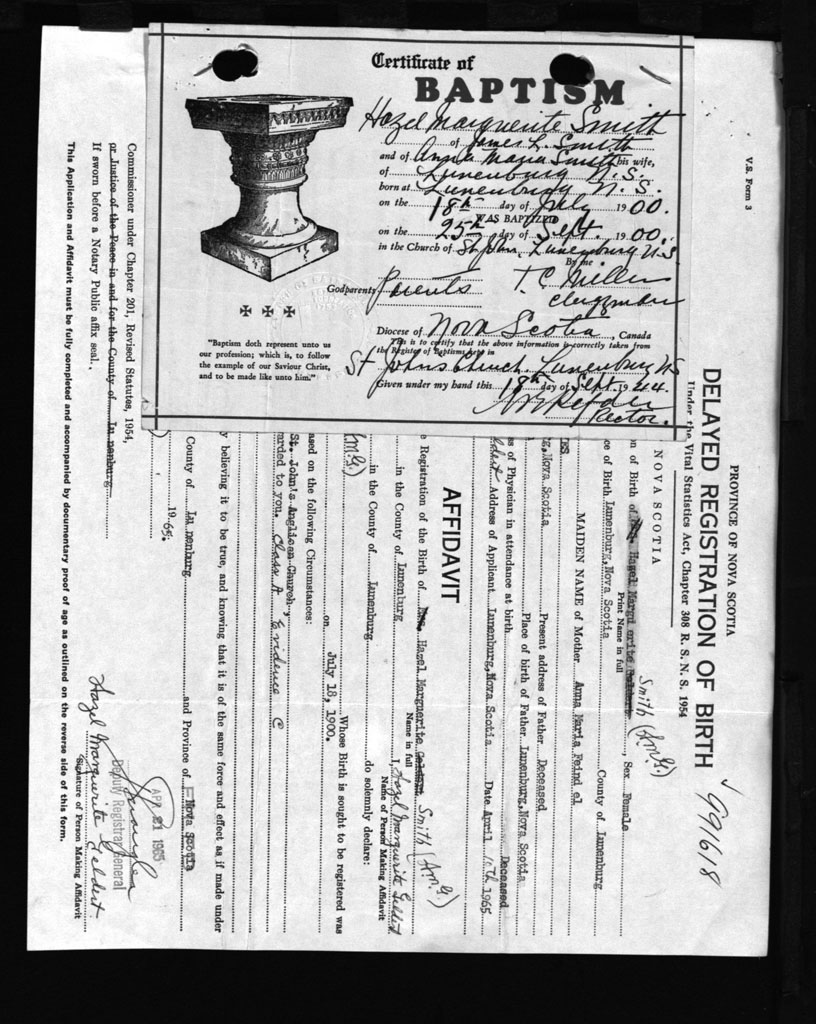 Certificate of
BAPTISM
Hazel Marguerite Smith
of James L. Smith
and of Anna Maria Smith his wife,
of Lunenburg N.S.
born at Lunenburg N.S.
on the 18th day of July 1900.
WAS BAPTIZED
on the 25th day of Sept. 1900.
in the Church of St John, Lunenburg N.S
By me
Godparents Parents T.C. Mellen
clergyman
Diocese of Nova Scotia, Canada
This is to certify that the above information is correctly taken from
the Register of Baptisms kept in
St Johns Church, Lunenburg NS
Given under my hand this 18th day of Sept. 1944.
Rector.
"Baptism doth represent unto us
our profession; which is, to follow
the example of our Saviour Christ,
and to be made like unto him."
V.S. Form 3
PROVINCE OF NOVA SCOTIA
DELAYED REGISTRATION OF BIRTH
991618
Under the Vital Statistics Act, Chapter 308 R. S. N. S. 1954
NOVA SCOTIA
Smith (A.M.G.)
n of Birth of Mrs. Hazel Margu erite Geldert, Sex Female
Print Name in full
ce of Birth Lunenburg, Nova Scotia County of Lunenburg
MAIDEN NAME of Mother Anna Maria Feind el
ES Present address of Father Deceased
g, Nova Scotia Place of birth of Father Lunenburg, Nova Scotia
ss of Physician in attendance at birth Deceased
Address of Applicant Lunenburg, Nova Scotia Date April 10th 1965
AFFIDAVIT
e Registration of the Birth of Mrs. Hazel Marguerite Geldert Smith (A.M.G.)
Name in full
in the County of Lunenburg I, Hazel Marguerite Geldert
Name of Person Making Affidavit
in the County of Lunenburg do solemnly declare:
(A.M.G.) Whose Birth is sought to be registered was
on July 18, 1900.
ased on the following Circumstances:
St. John's Anglican Church,
arded to you. Class A Evidence C
y believing it to be true, and knowing that it is of the same force and effect as if made under
County of Lu nenburg and Province of Nova Scotia
1965.
APR 21 1965
Deputy Registrar General
Hazel Marguerite Geldert.
Signature of Person Making Affidavit
Commissioner under Chapter 201, Revised Statutes, 1954,
or Justice of the Peace in and for the County of Lu nenburg
If sworn before a Notary Public affix seal.
This Application and Affidavit must be fully completed and accompanied by documentary proof of age as outlined on the reverse side of this form.